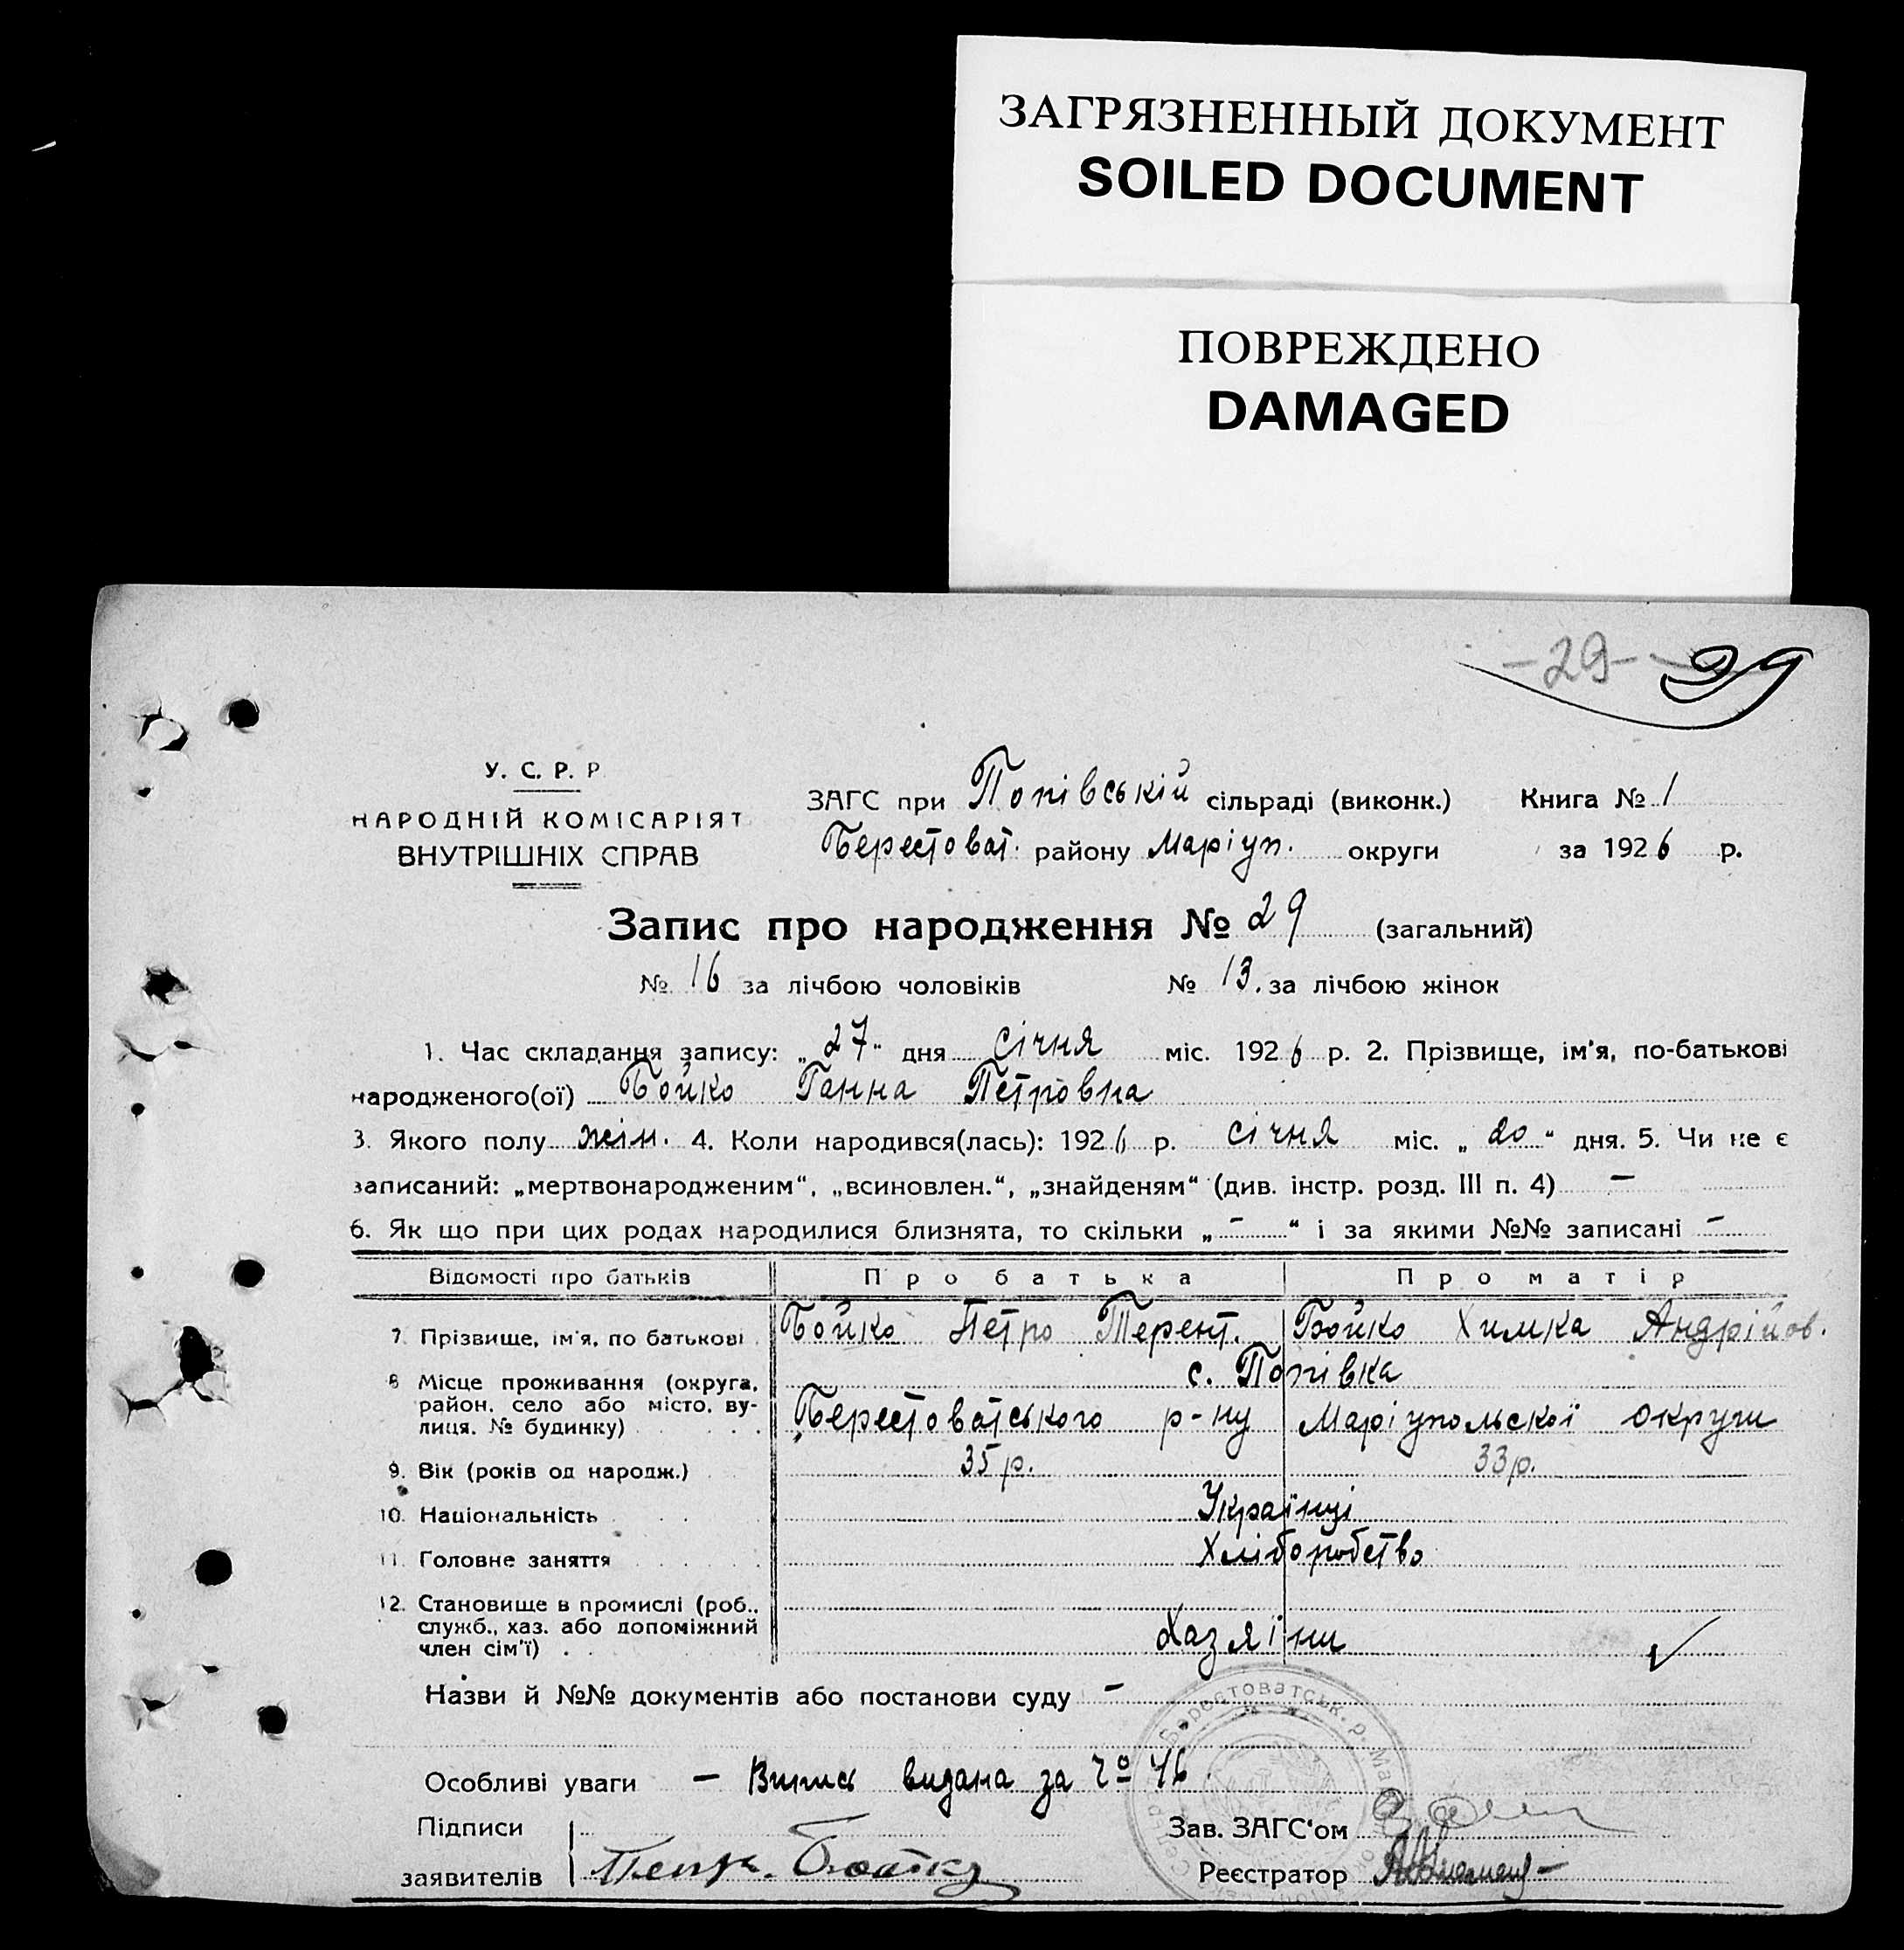 ЗАГРЯЗНЕННЫЙ ДОКУМЕНТ
SOILED DOCUMENT
ПОВРЕЖДЕНО
DAMAGED
-29- 29
У. С. Р. Р.
НАРОДНІЙ КОМІСАРІЯТ
ВНУТРІШНІХ СПРАВ
ЗАГС при Попівській сільраді (виконк.) Книга № 1
Берестоват. району Маріуп. округи за 1926 р.
Запис про народження № 29 (загальний)
№ 16 за лічбою чоловіків № 13. за лічбою жінок
1. Час складання запису: „27" дня січня міс. 1926 р. 2. Прізвище, ім'я, по-батькові
народженого(ої) Бойко Ганна Петровна
3. Якого полу жін. 4. Коли народився(лась): 1926 р. січня міс. „20" дня. 5. Чи не є
записаний: „мертвонародженим", „всиновлен.", „знайденям" (див. інстр. розд. III п. 4) —
6. Як що при цих родах народилися близнята, то скільки „—" і за якими №№ записані —
Відомості про батьків Про батька Про матір
7. Прізвище, ім'я, по батькові Бойко Петро Терент. Бойко Химка Андрійов.
8 Місце проживання (округа, с. Попівка
район, село або місто, ву-
лиця, № будинку) Берестоватського р-ну Маріупольскої округи
9. Вік (років од народж.) 35 р. 33 р.
10. Національність Українці
11. Головне заняття Хліборобство
12. Становище в промислі (роб.,
служб., хаз. або допоміжний
член сім'ї) Хазяїни ✓
Назви й №№ документів або постанови суду —
Берестоватськ. р.
Особливі уваги — Випись видана за № 46.
Підписи
Зав. ЗАГС'ом
заявителів Петр. Бойко Реєстратор